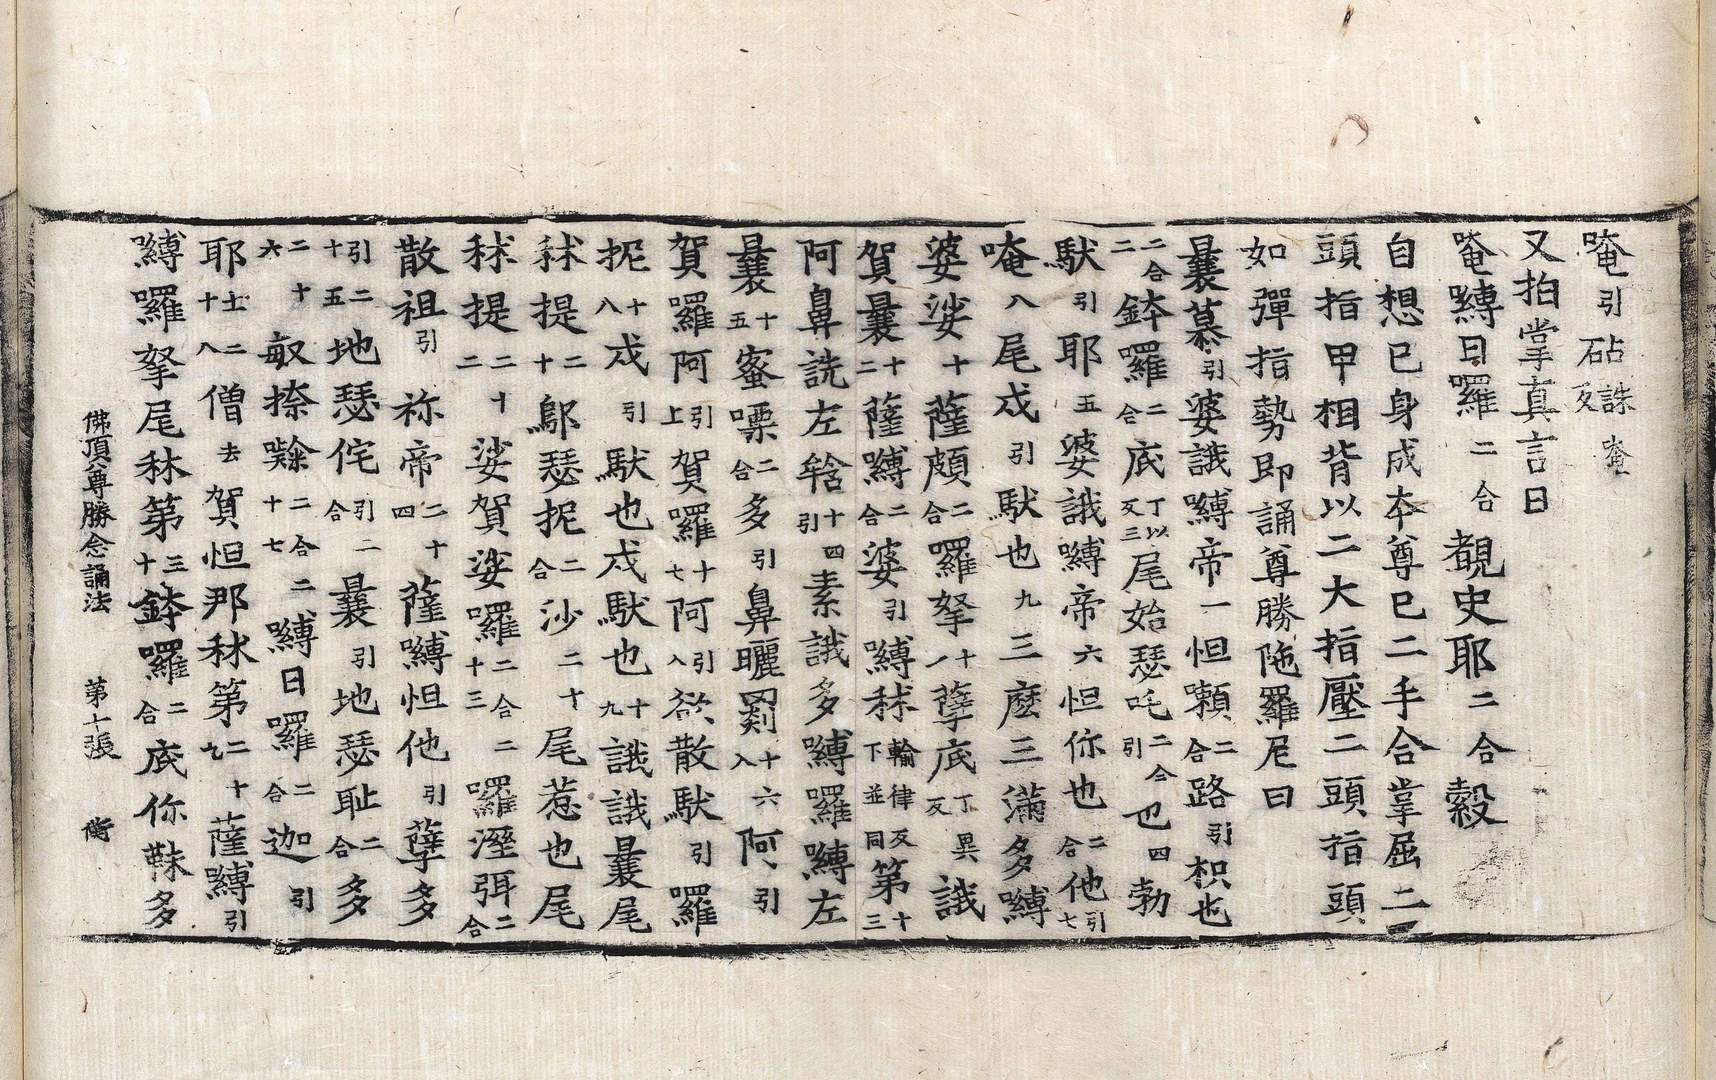 唵引砧誅反唵
又拍掌真言曰
唵嚩日囉二合覩史耶二合縠
自想已身成本尊已二手合掌屈二
頭指甲相背以二大指壓二頭指頭
如彈指勢即誦尊勝陁羅尼曰
曩慕引婆誐嚩帝一怛嚩二合路引枳也
二合二鉢囉二合底丁以反三尾始瑟吒二合引也四勃
馱引耶五婆誐嚩帝六怛你也二合他引七
唵八尾戍引馱也九三麽三滿多嚩
婆娑十薩頗二合囉拏十一孽底丁異反誐
賀曩十二薩嚩二合婆引嚩秫輸律反下並同第十三
阿鼻詵左輨引十四素誐多嚩囉嚩左
曩十五蜜㗚二合多引鼻曬罽十六入阿引
賀囉阿引上賀囉十七阿引八欲散馱引囉
抳十八戍引馱也戍馱也十九誐誐曩尾
秫提二十鄔瑟抳二合沙二十尾惹也尾
秫提二十二娑賀娑囉二合十三囉溼弭二合
散祖引祢帝二十四薩嚩怛他引孽多
引二十五地瑟侘引二合曩引地瑟耻二合多
二十六敏捺㘑二合二十七嚩日囉二合迦引
耶二十八僧去賀怛那秫第二十九薩嚩引
嚩囉拏尾秫第三十鉢囉二合底你靺多
佛頂尊勝念誦法　第十張　衡